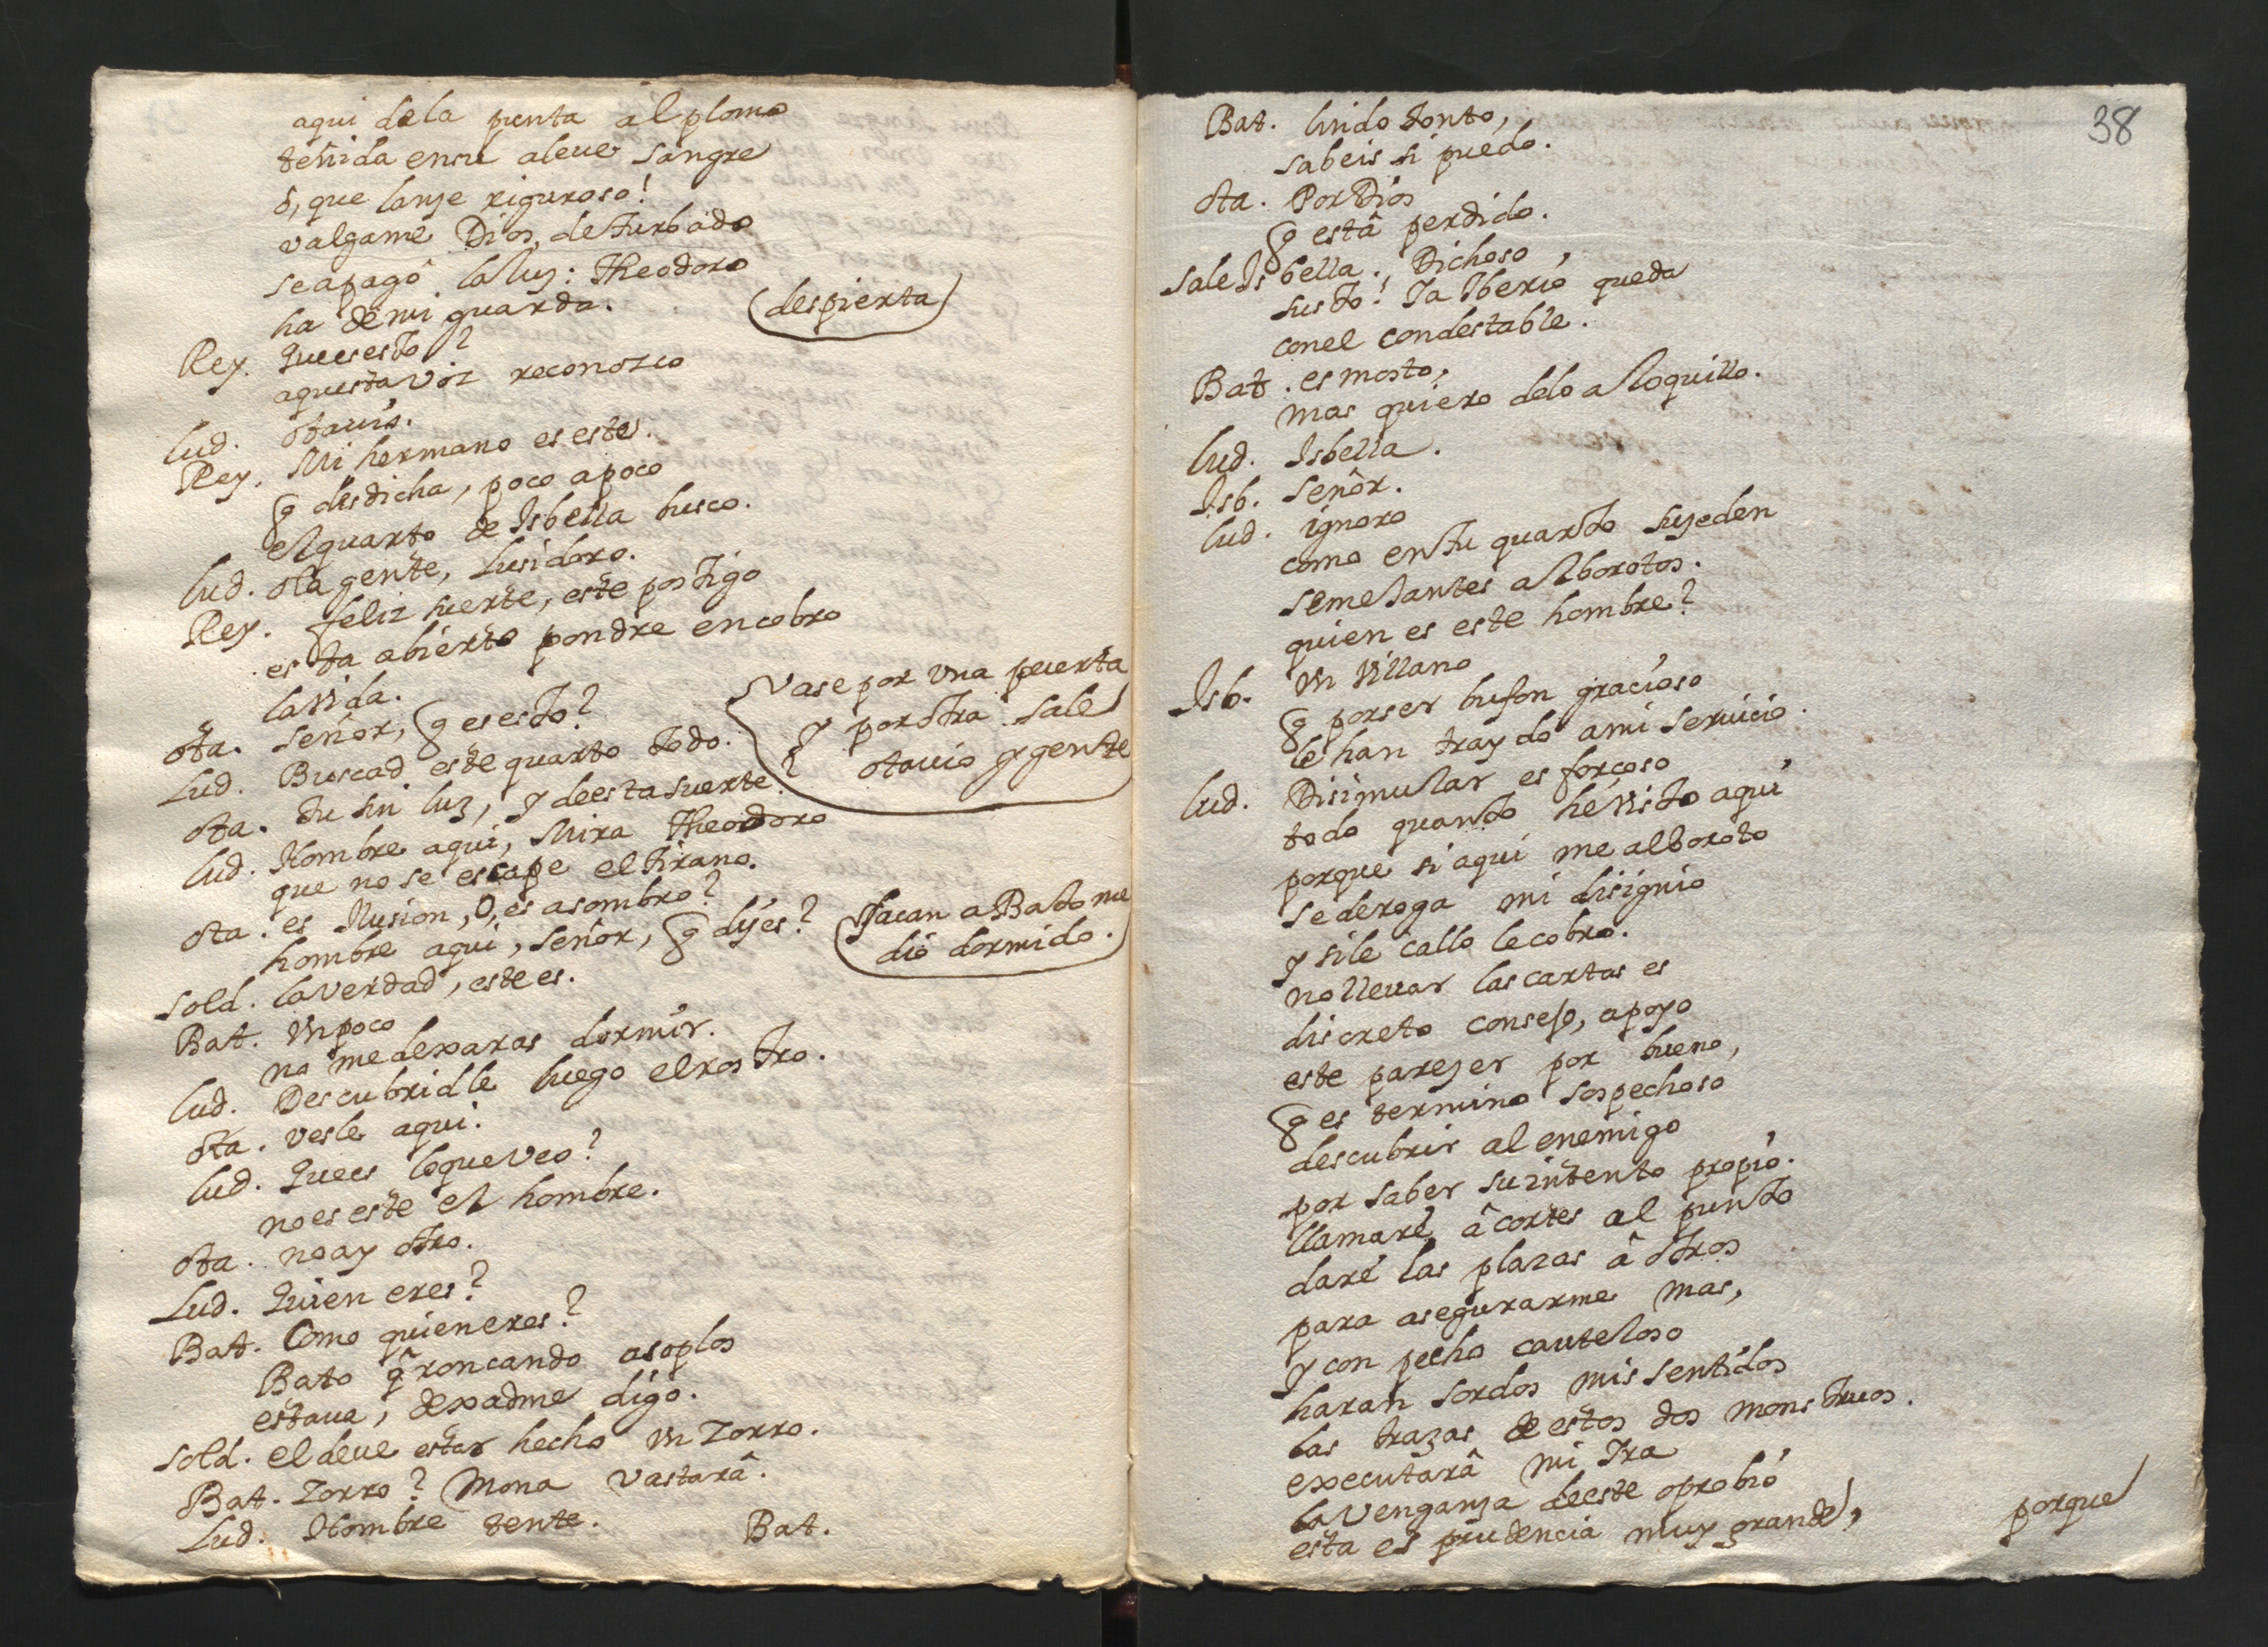 aqui de la punta al plomo
teñida en su aleue sangre
ô, que lanze riguroso!
valgame Dios, de turbado
se apagô la luz: Theodoro
ha de mi guarda.
(despierta)
Rey. Que es esto?
aquesta voz reconozco
Lud. Otauio.
Rey. Mi hermano es este.
q desdicha, poco a poco
el quarto de Isbella busco.
Lud. Ola gente, Lusidoro.
Rey. feliz suerte, este postigo
esta abierto pondre en cobro
la vida.
Vase por vna puerta
y por otra sale
otauio y gente
Ota. Señor, q es esto?
Lud. Buscad este quarto todo.
Ota. tu sin luz, y de esta suerte?
Lud. Hombre aqui, Mira Theodoro
que no se escape el tirano.
Ota. es Ilusion, O, es asombro?
hombre aqui, señor, q dizes?
Sacan a Bato me
dio dormido.
Sold. la verdad, este es.
Bat. vn poco
no me dexaras dormir.
Lud. Descubridle luego el rostro.
Ota. vesle aqui.
Lud. Que es lo que veo?
no es este el hombre.
Ota. no ay otro.
Lud. Quien eres?
Bat. Como quien eres?
Bato q̂ roncando a soplos
estaua, dexadme digo.
Sold. el deue estar hecho vn zorro.
Bat. Zorro? Mona vastarâ.
Lud. Hombre tente.
Bat.
38
Bat. lindo tonto,
sabeis si puedo.
Ota. Por Dios
q estâ perdido.
Sale Isbella. Dichoso
susto! Ya Iberio queda
con el condestable.
Bat. es mosto,
mas quiero delo aloquillo.
Lud. Isbella.
Isb. Señor.
Lud. ignoro
como en tu quarto suzeden
semejantes alborotos.
quien es este hombre?
Isb. vn villano
q por ser bufon gracioso
le han traydo a mi seruicio.
Lud. Disimular es forçoso
todo quanto he visto aqui
porque si aqui me alboroto
se deroga mi disignio
y si le callo le cobro.
no lleuar las cartas es
discreto consejo, apoyo
este parezer por bueno,
q es termino sospechoso
descubrir al enemigo
por saber su intento propio.
llamaré â cortes al punto
daré las plazas â otros
para asegurarme mas,
y con pecho cauteloso
haran sordos mis sentidos
las trazas de estos dos monstruos.
executarâ mi Ira
la venganza de este oprobio
esta es prudencia muy grande,
porque